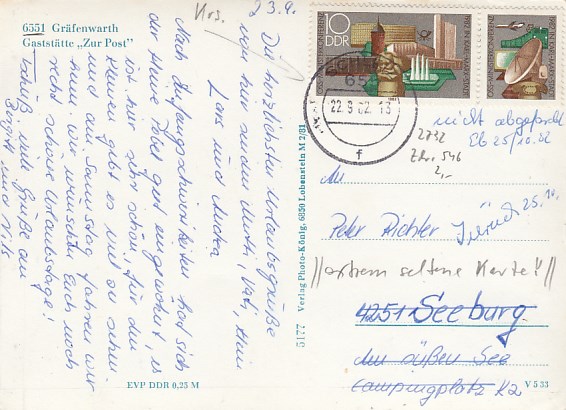 6551 Gräfenwarth
Gaststätte „Zur Post“
Kos.
23.9.
Die herzlichsten Urlaubsgrüße
von hier senden Mutti, Vati,
Lars und
Nach Anfangsschwierigkeiten hat sich
der kleine gut eingewöhnt, es
ist hier sehr schön, für den
kleinen gibt es viel zu sehen
und am Samstag fahren wir
wir wünschen Euch noch
recht schöne Urlaubstage!
Tschüß und Grüße an
Birgit und Nils
EVP DDR 0,25 M
5177 Verlag Photo-König, 6850 Lobenstein M 2/81
10
DDR
22.9.82.13
f
nicht abgeholt
Eb 25/10.82
2732
546
2,-
An
Peter Richter
Zurück 25.10.
//extrem seltene Karte!//
4251 Seeburg
am süßen See
Campingplatz K2
V 5 33